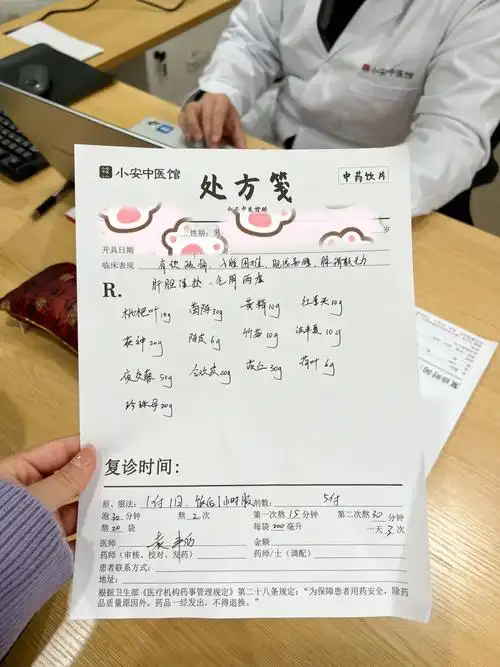 小安中医馆
小安中医馆
处方笺
中药饮片
小安中医诊所
性别：男
岁
开具日期
临床表现
入睡困难
R.
肝胆湿热，气阴两虚
枇杷叶10g 茵陈30g 黄精10g 红景天10g
茯神20g 陈皮6g 竹茹10g 10g
夜交藤50g 合欢皮20g 茯苓30g 荷叶6g
珍珠母20g
复诊时间：
复诊时间：
煎、服法：1付1日，饭后1小时服 剂数：5付
泡30分钟 熬2次 第一次熬15分钟 第二次熬30分钟
熬20袋 每袋200毫升 一天3次
医师 金额
药师（审核、校对、发药） 药师/士（调配）
患者联系方式：
地址：
根据卫生部《医疗机构药事管理规定》第二十八条规定：“为保障患者用药安全，除药
品质量原因外，药品一经发出，不得退换。”